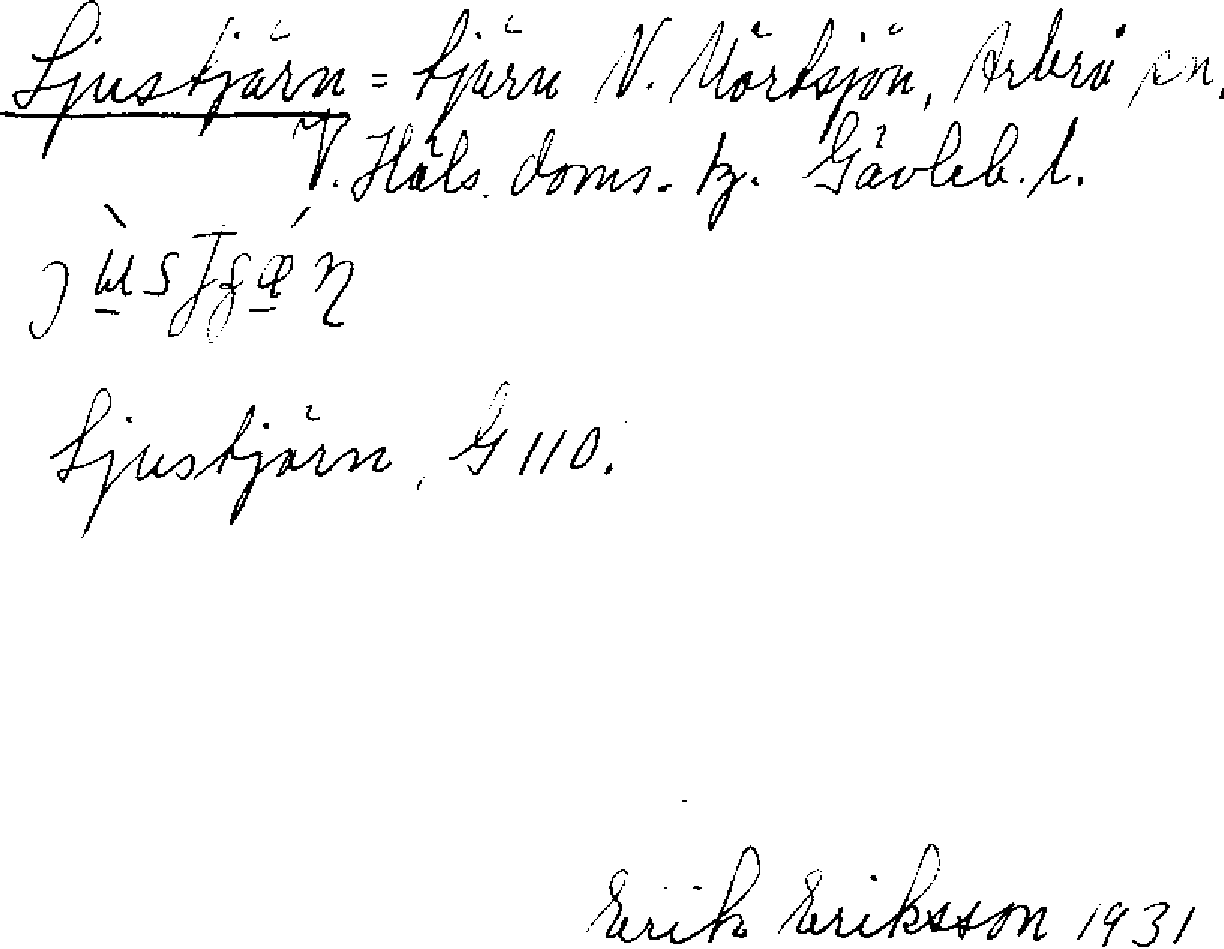 Ljustjärn = tjärn N. Mörtsjön, Arbrå sn.
V. Häls. doms. tg. Gävleb. l.
Ljustjärn, G 110.
Erik Eriksson 1931